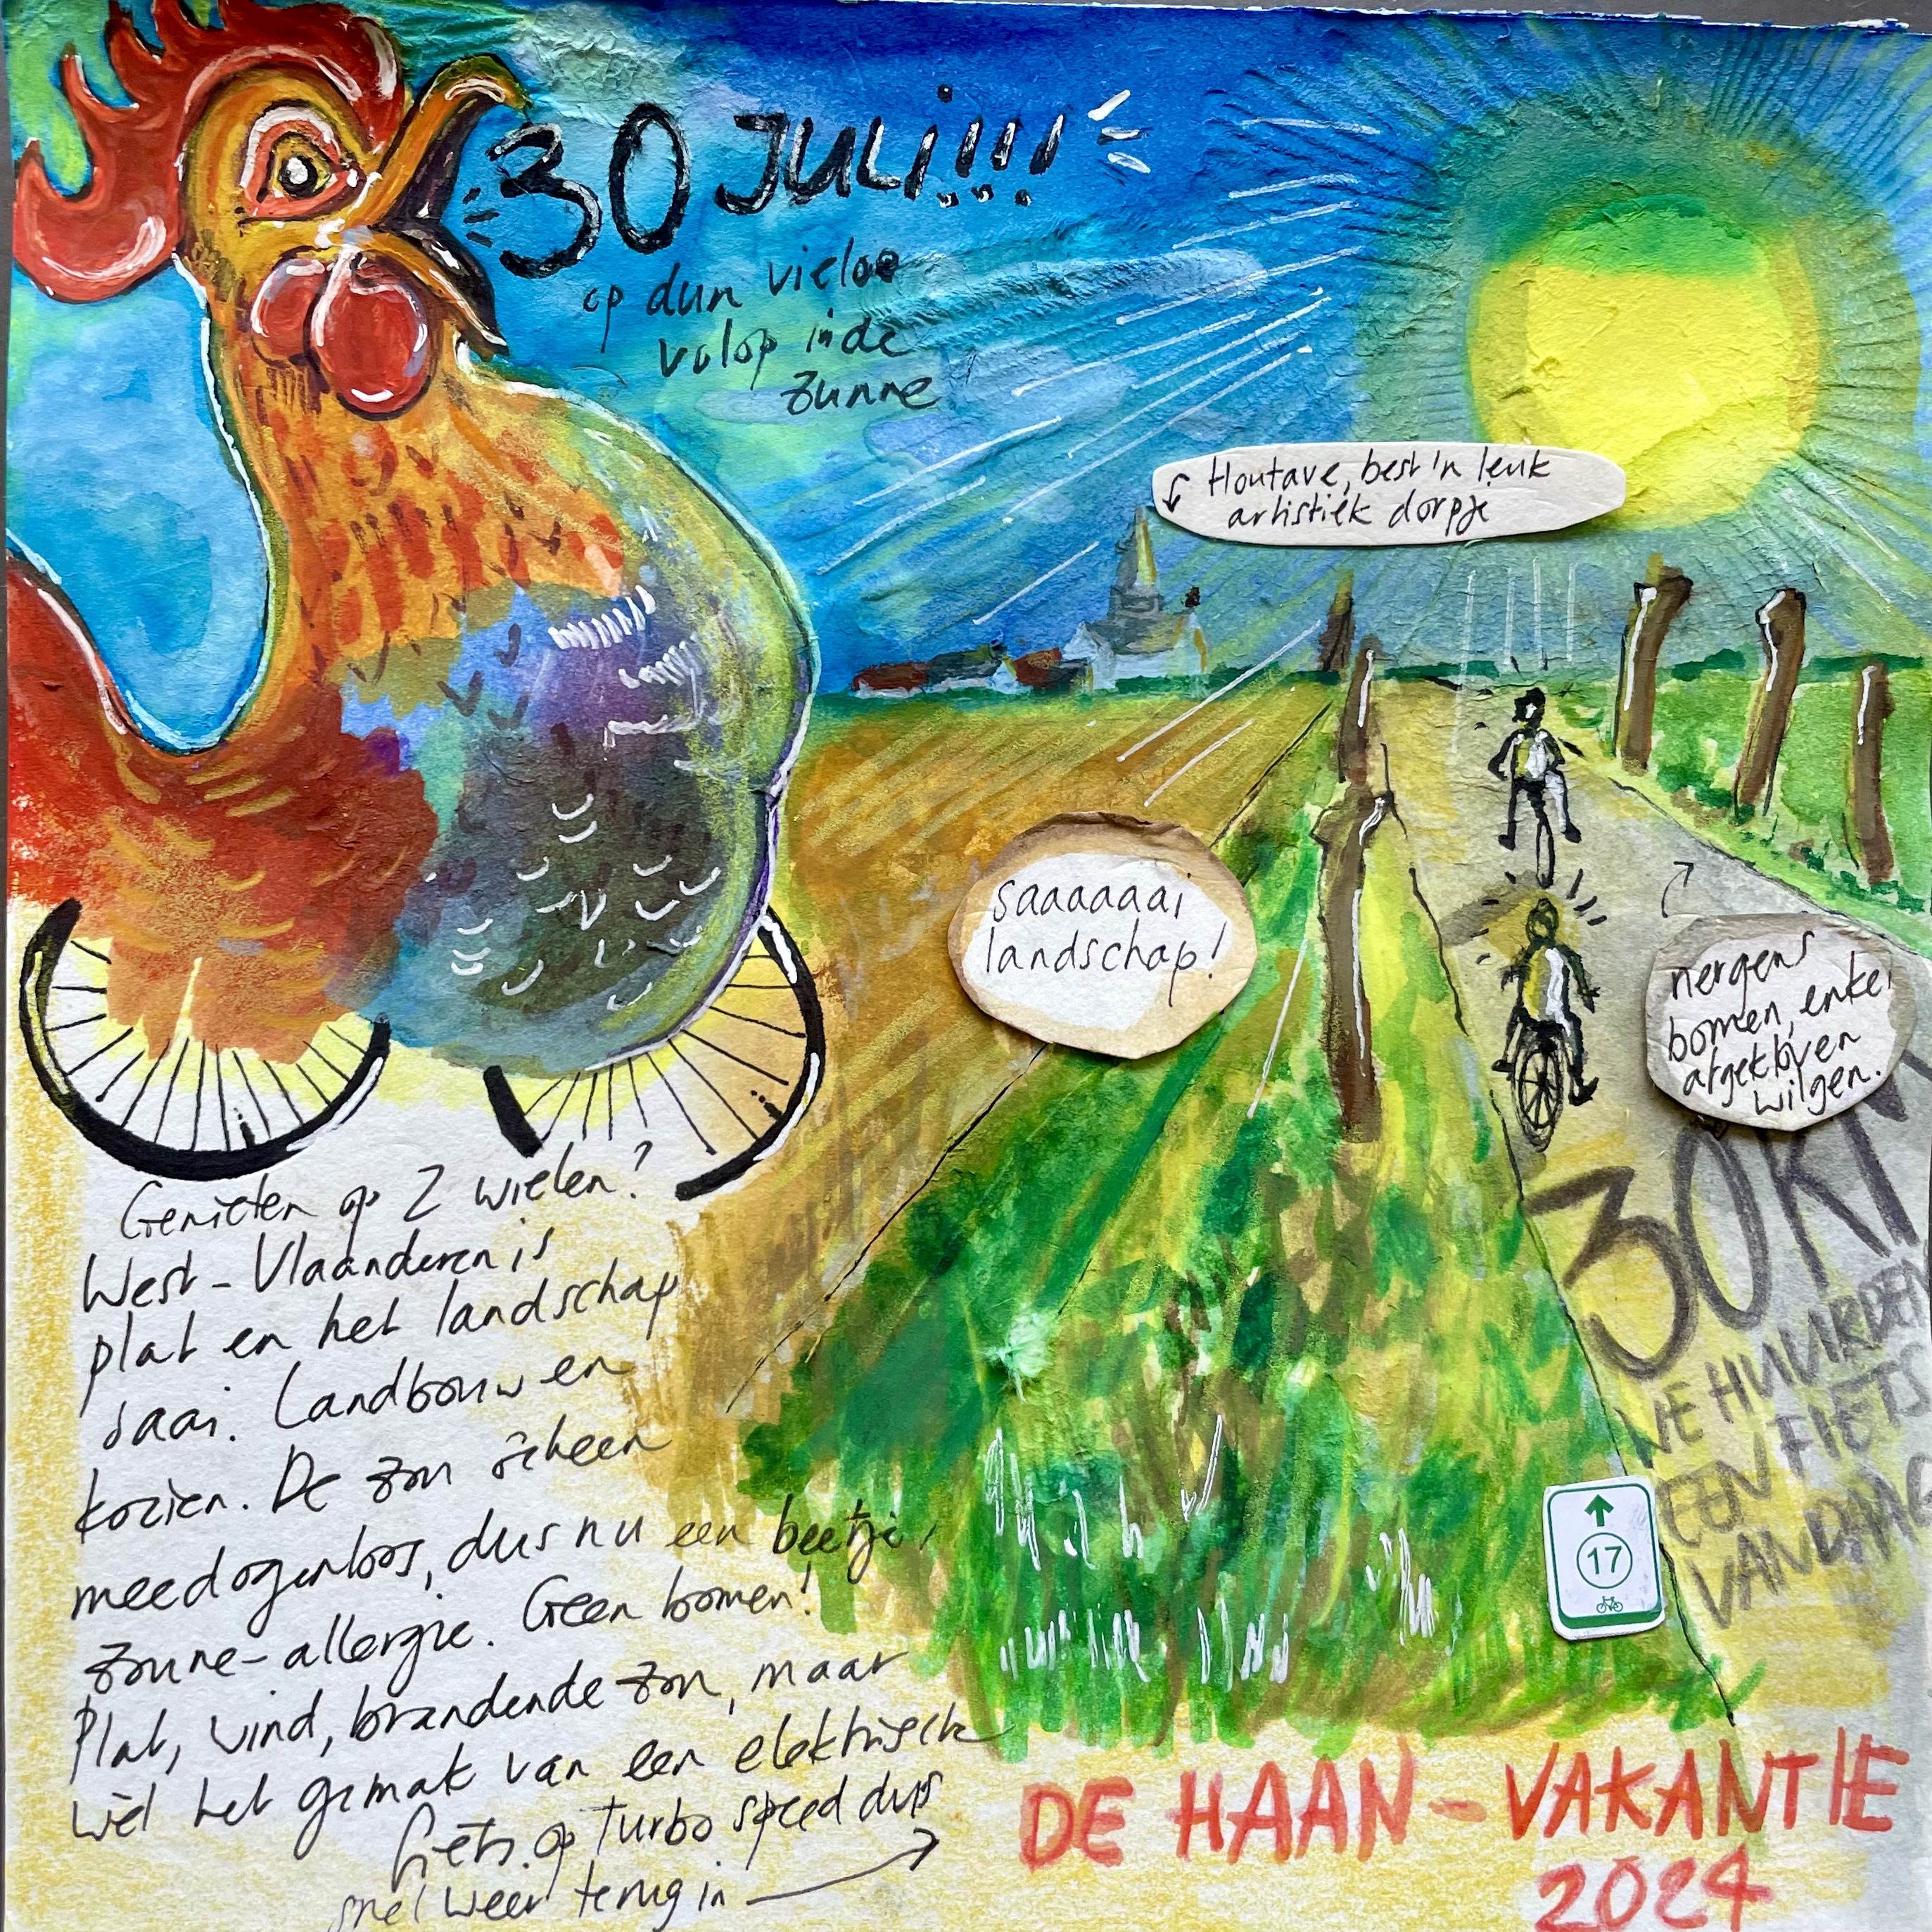 30 JULI!!!
op dun vieloo
volop in de
zunne
Houtave, best 'n leuk
artistiek dorpje
saaaaaai
landschap!
nergens
bomen, enkel
afgekloven
wilgen.
30KM
WE HUURDEN
EEN FIETS
VANDAAG
17
Genieten op 2 wielen?
West-Vlaanderen is
plat en het landschap
saai. Landbouw en
koeien. De zon scheen
meedogenloos, dus nu een beetje
zonne-allergie. Geen bomen!
Plat, wind, brandende zon, maar
wel het gemak van een elektrische
fiets op turbo speed dus
snel weer terug in
DE HAAN-VAKANTIE
2024